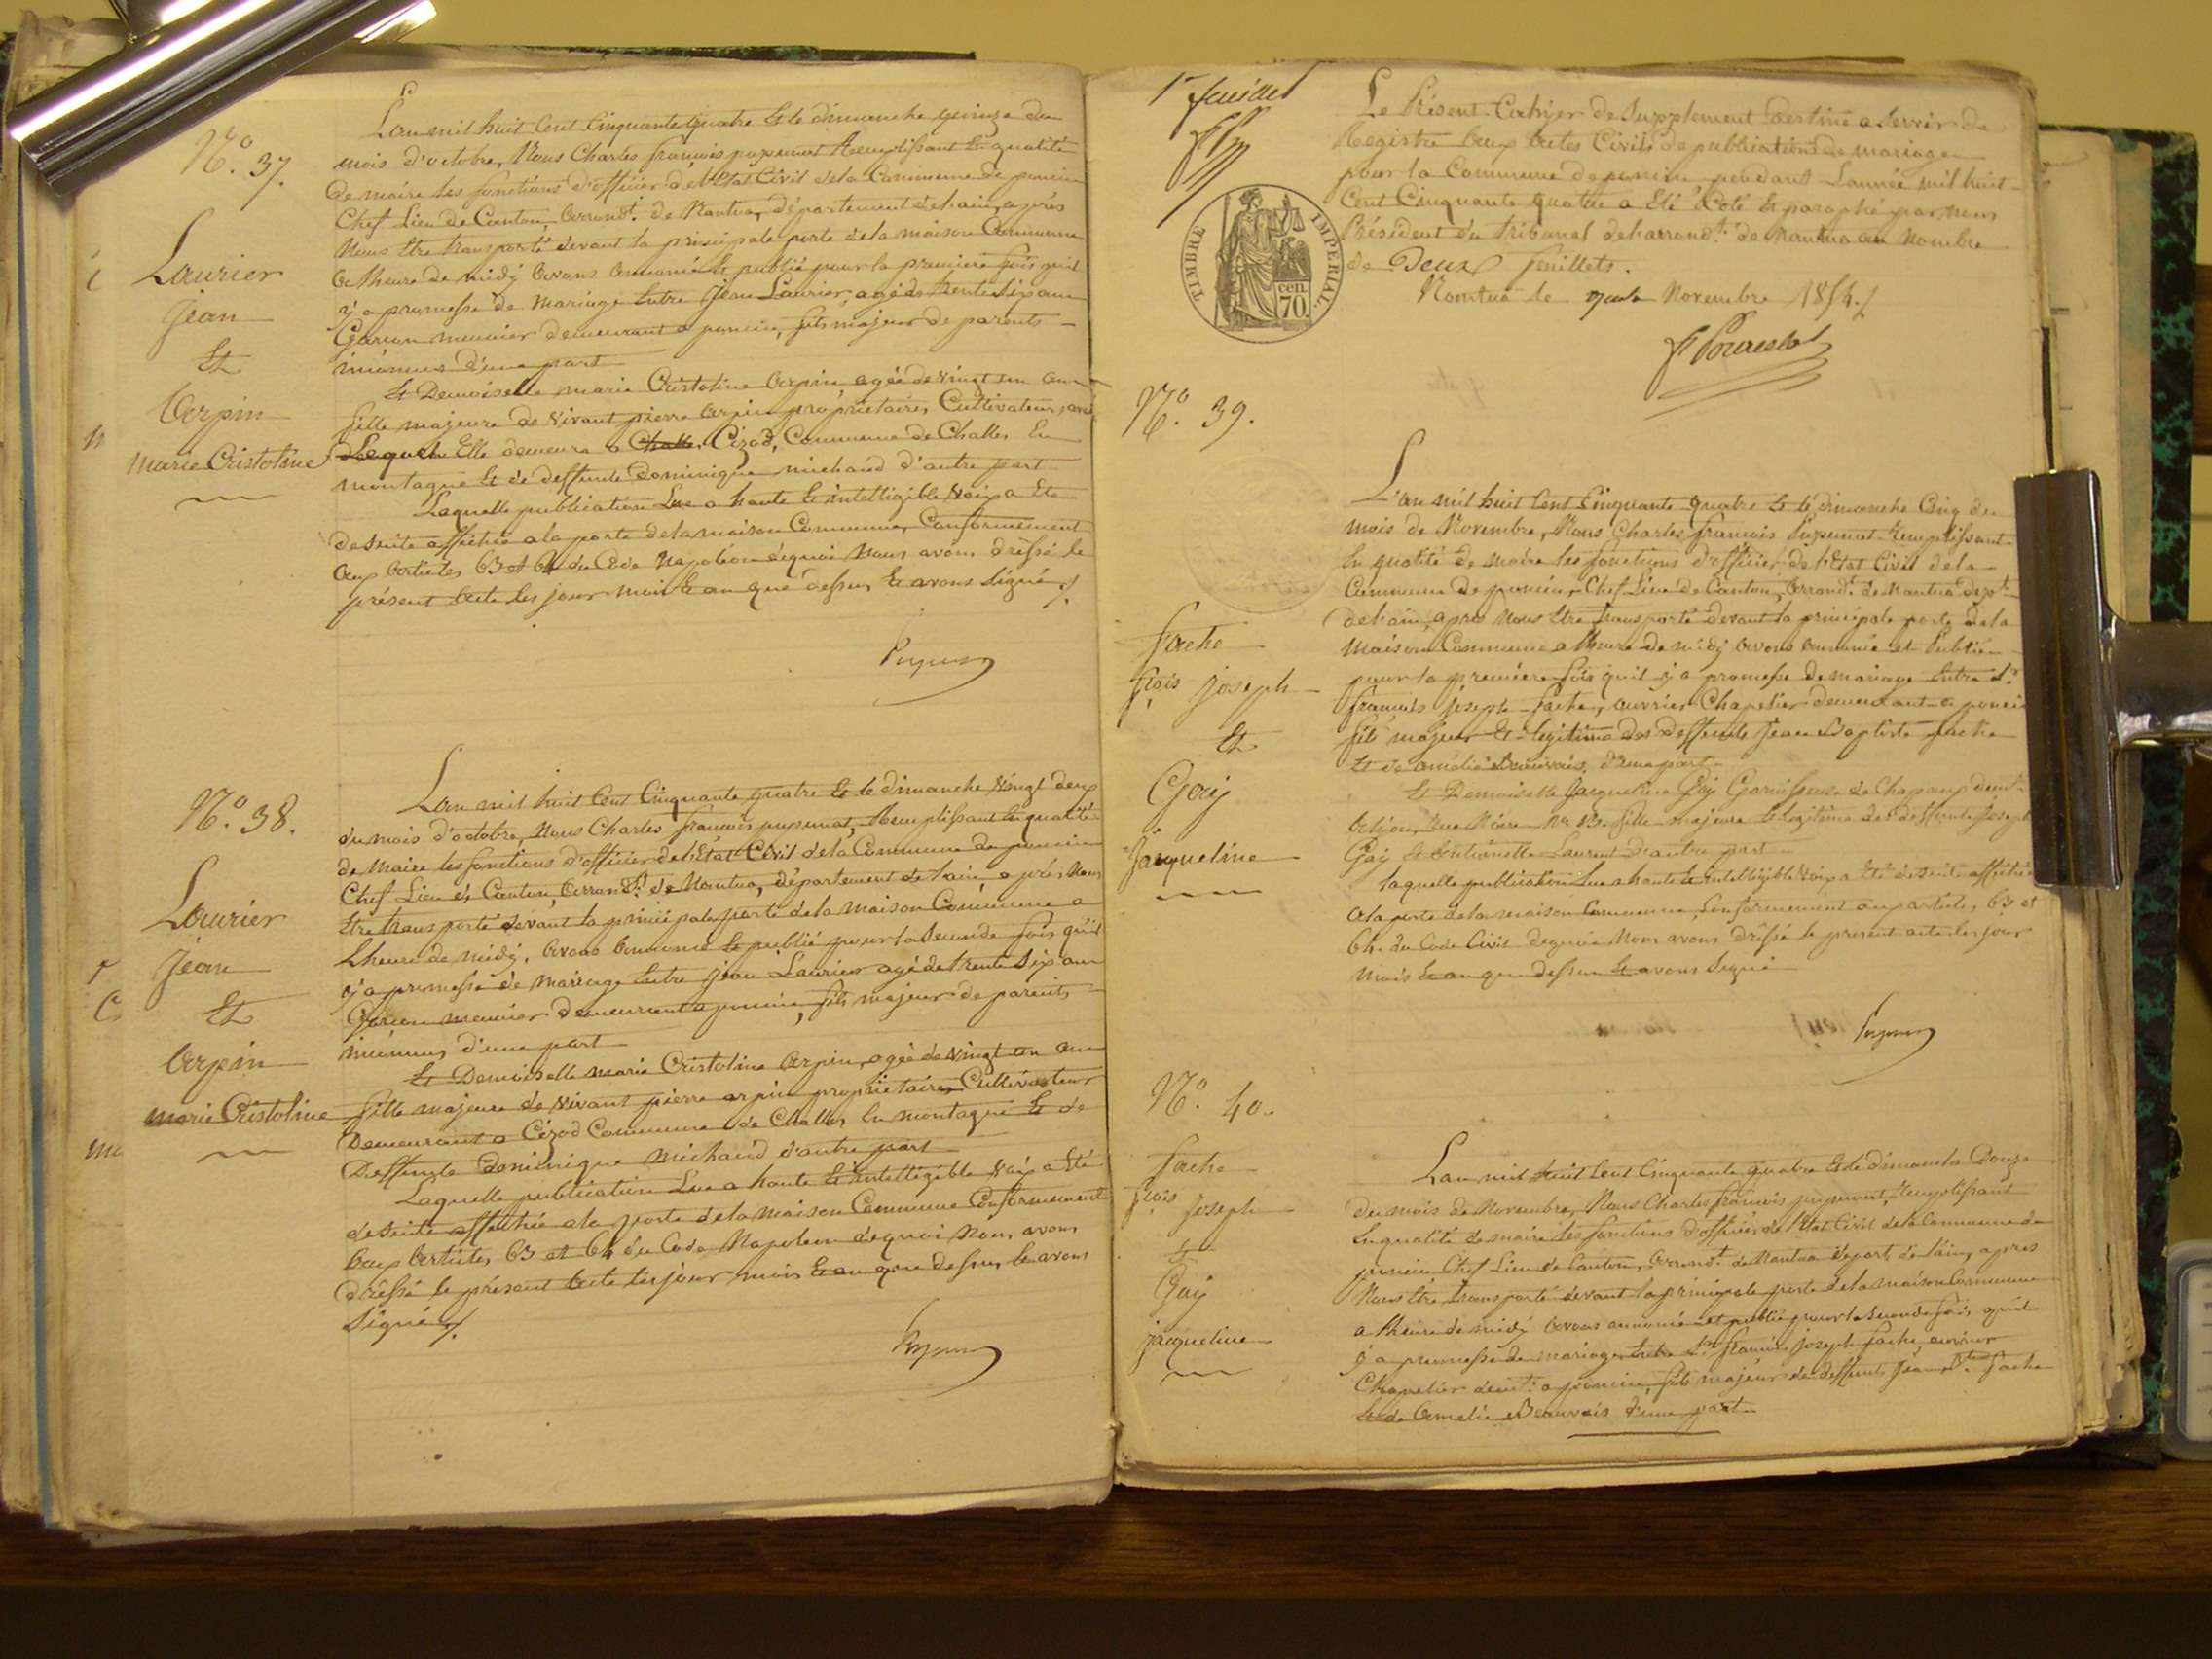 N.o 37.
Laurier
Jean
Et
Arpin
Marie Cristoline
L'an mil huit Cent Cinquante quatre Et le dimanche quinze du
mois d'octobre, Nous Charles françois puysenat Remplissant En qualité
de maire les fonctions d'officier de l'Etat Civil de la Commune de poncin
Chef Lieu de Canton, Arrond.t de Nantua, département de l'ain, après
Nous Etre transporté devant la principale porte de la maison Commune
a L'heure de midÿ Avons annoncé Et publié pour la premiere fois qu'il
ÿ a promesse de mariage Entre Jean Laurier, agé de trente six ans
Garçon meunier demeurant a poncin, fils majeur de parents
inconnus d'une part
Et Demoiselle marie Cristoline Arpin, agée de vingt un ans
fille majeure de vivant pierre Arpin propriétaires Cultivateurs, avec
Lequel Elle demeure a Challes Cizod, Commune de Challes En
montagne Et de deffunte Dominique michaud d'autre part
Laquelle publication Lue a haute Et intelligible Voix a Eté
de suite affichée a la porte de la maison Commune, Conformement
Aux Articles 63 et 64 du Code Napoléon de quoi Nous avons dréssé le
présent Acte les jour mois Et an que dessus Et avons Signé ./.
N.o 38.
Laurier
Jean
Et
Arpin
marie Cristoline
L'an mil huit Cent Cinquante quatre Et le dimanche Vingt deux
du mois d'octobre, Nous Charles françois puysenat, Remplissant En qualité
de Maire les fonctions d'officier de l'Etat Civil de la Commune de poncin
Chef Lieu de Canton, Arrond.t de Nantua, département de l'ain, après Nous
Etre transporté devant la principale porte de la maison Commune a
L'heure de midÿ, Avons Annoncé Et publié pour la Seconde fois qu'il
ÿ a promesse de Mariage Entre Jean Laurier agé de trente Six ans
Garçon meunier demeurant a poncin, fils majeur de parents
inconnus d'une part
Et Demoiselle marie Cristoline Arpin, agée de vingt un ans
fille majeure de vivant pierre arpin propriétaires Cultivateur
Demeurant a Cizod Commune de Challes En montagne Et de
Deffunte Dominique Michaud d'autre part
Laquelle publication Lue a haute Et intelligible Voix a Eté
de suite affichée a la porte de la maison Commune Conformement
Aux Articles 63 et 64 du Code Napoléon de quoi Nous avons
dréssé le présent Acte les jour mois Et an que dessus Et avons
Signé ./.
1er feuillet
TIMBRE IMPERIAL.
cen.
70.
Le Présent Cahier de Supplement destiné a Servir de
Registre Aux Actes Civils de publications de mariage
pour la Commune de poncin pendant L'année mil huit
Cent Cinquante quatre a Eté Coté Et paraphé par nous
Président du tribunal de l'arrond.t de Nantua au Nombre
de Deux feuillets.
Nantua le Novembre 1854./.
N.o 39.
fache
f.çois joseph
Et
Gaÿ
Jacqueline
L'an mil huit Cent Cinquante quatre Et le dimanche Cinq du
mois de Novembre, Nous Charles françois Puysenat Remplissant
En qualité de maire les fonctions d'officier de l'Etat Civil de la
Commune de poncin, Chef Lieu de Canton, Arrond.t de Nantua Dép.t
de l'ain, après Nous Etre transporté devant la principale porte de la
Maison Commune a l'heure de midÿ Avons annoncé et Publié
pour la première fois qu'il ÿ a promesse de mariage Entre S.r
françois joseph fache, ouvrier Chapelier demeurant a poncin
fils majeur Et legitime des deffunts Jean Baptiste fache
Et de amélie Beauvais d'une part
Et Demoiselle Jacqueline Gaÿ Garnisseuse de Chapeaux dem.t
a Lyon, Rue Mère fille majeure Et legitime des deffunts Joseph
Gaÿ Et Laurent d'autre part
Laquelle publication Lue a haute Et intelligible Voix a Eté de suite affichée
a la porte de la maison Commune, Conformement aux articles, 63 et
64. du Code Civil de quoi Nous avons dréssé le présent acte les jour
Mois Et an que dessus Et avons Signé
N.o 40.
fache
f.çois joseph
Et
Gaÿ
jacqueline
L'an mil huit Cent Cinquante quatre Et le dimanche Douze
du mois de Novembre, Nous Charles françois puysenat, Remplissant
En qualité de maire les fonctions d'officier de l'Etat Civil de la Commune de
poncin Chef Lieu de Canton, Arrond.t de Nantua départ. de l'ain, apres
Nous Etre transporté devant la principale porte de la maison Commune
a l'heure de midÿ Avons annoncé et publié pour la seconde fois, qu'il
ÿ a promesse de mariage Entre S.r françois joseph fache, ouvrier
Chapelier dem.t a poncin, fils majeur de deffunts Jean B.te fache
Et de Amelie Beauvais d'une part